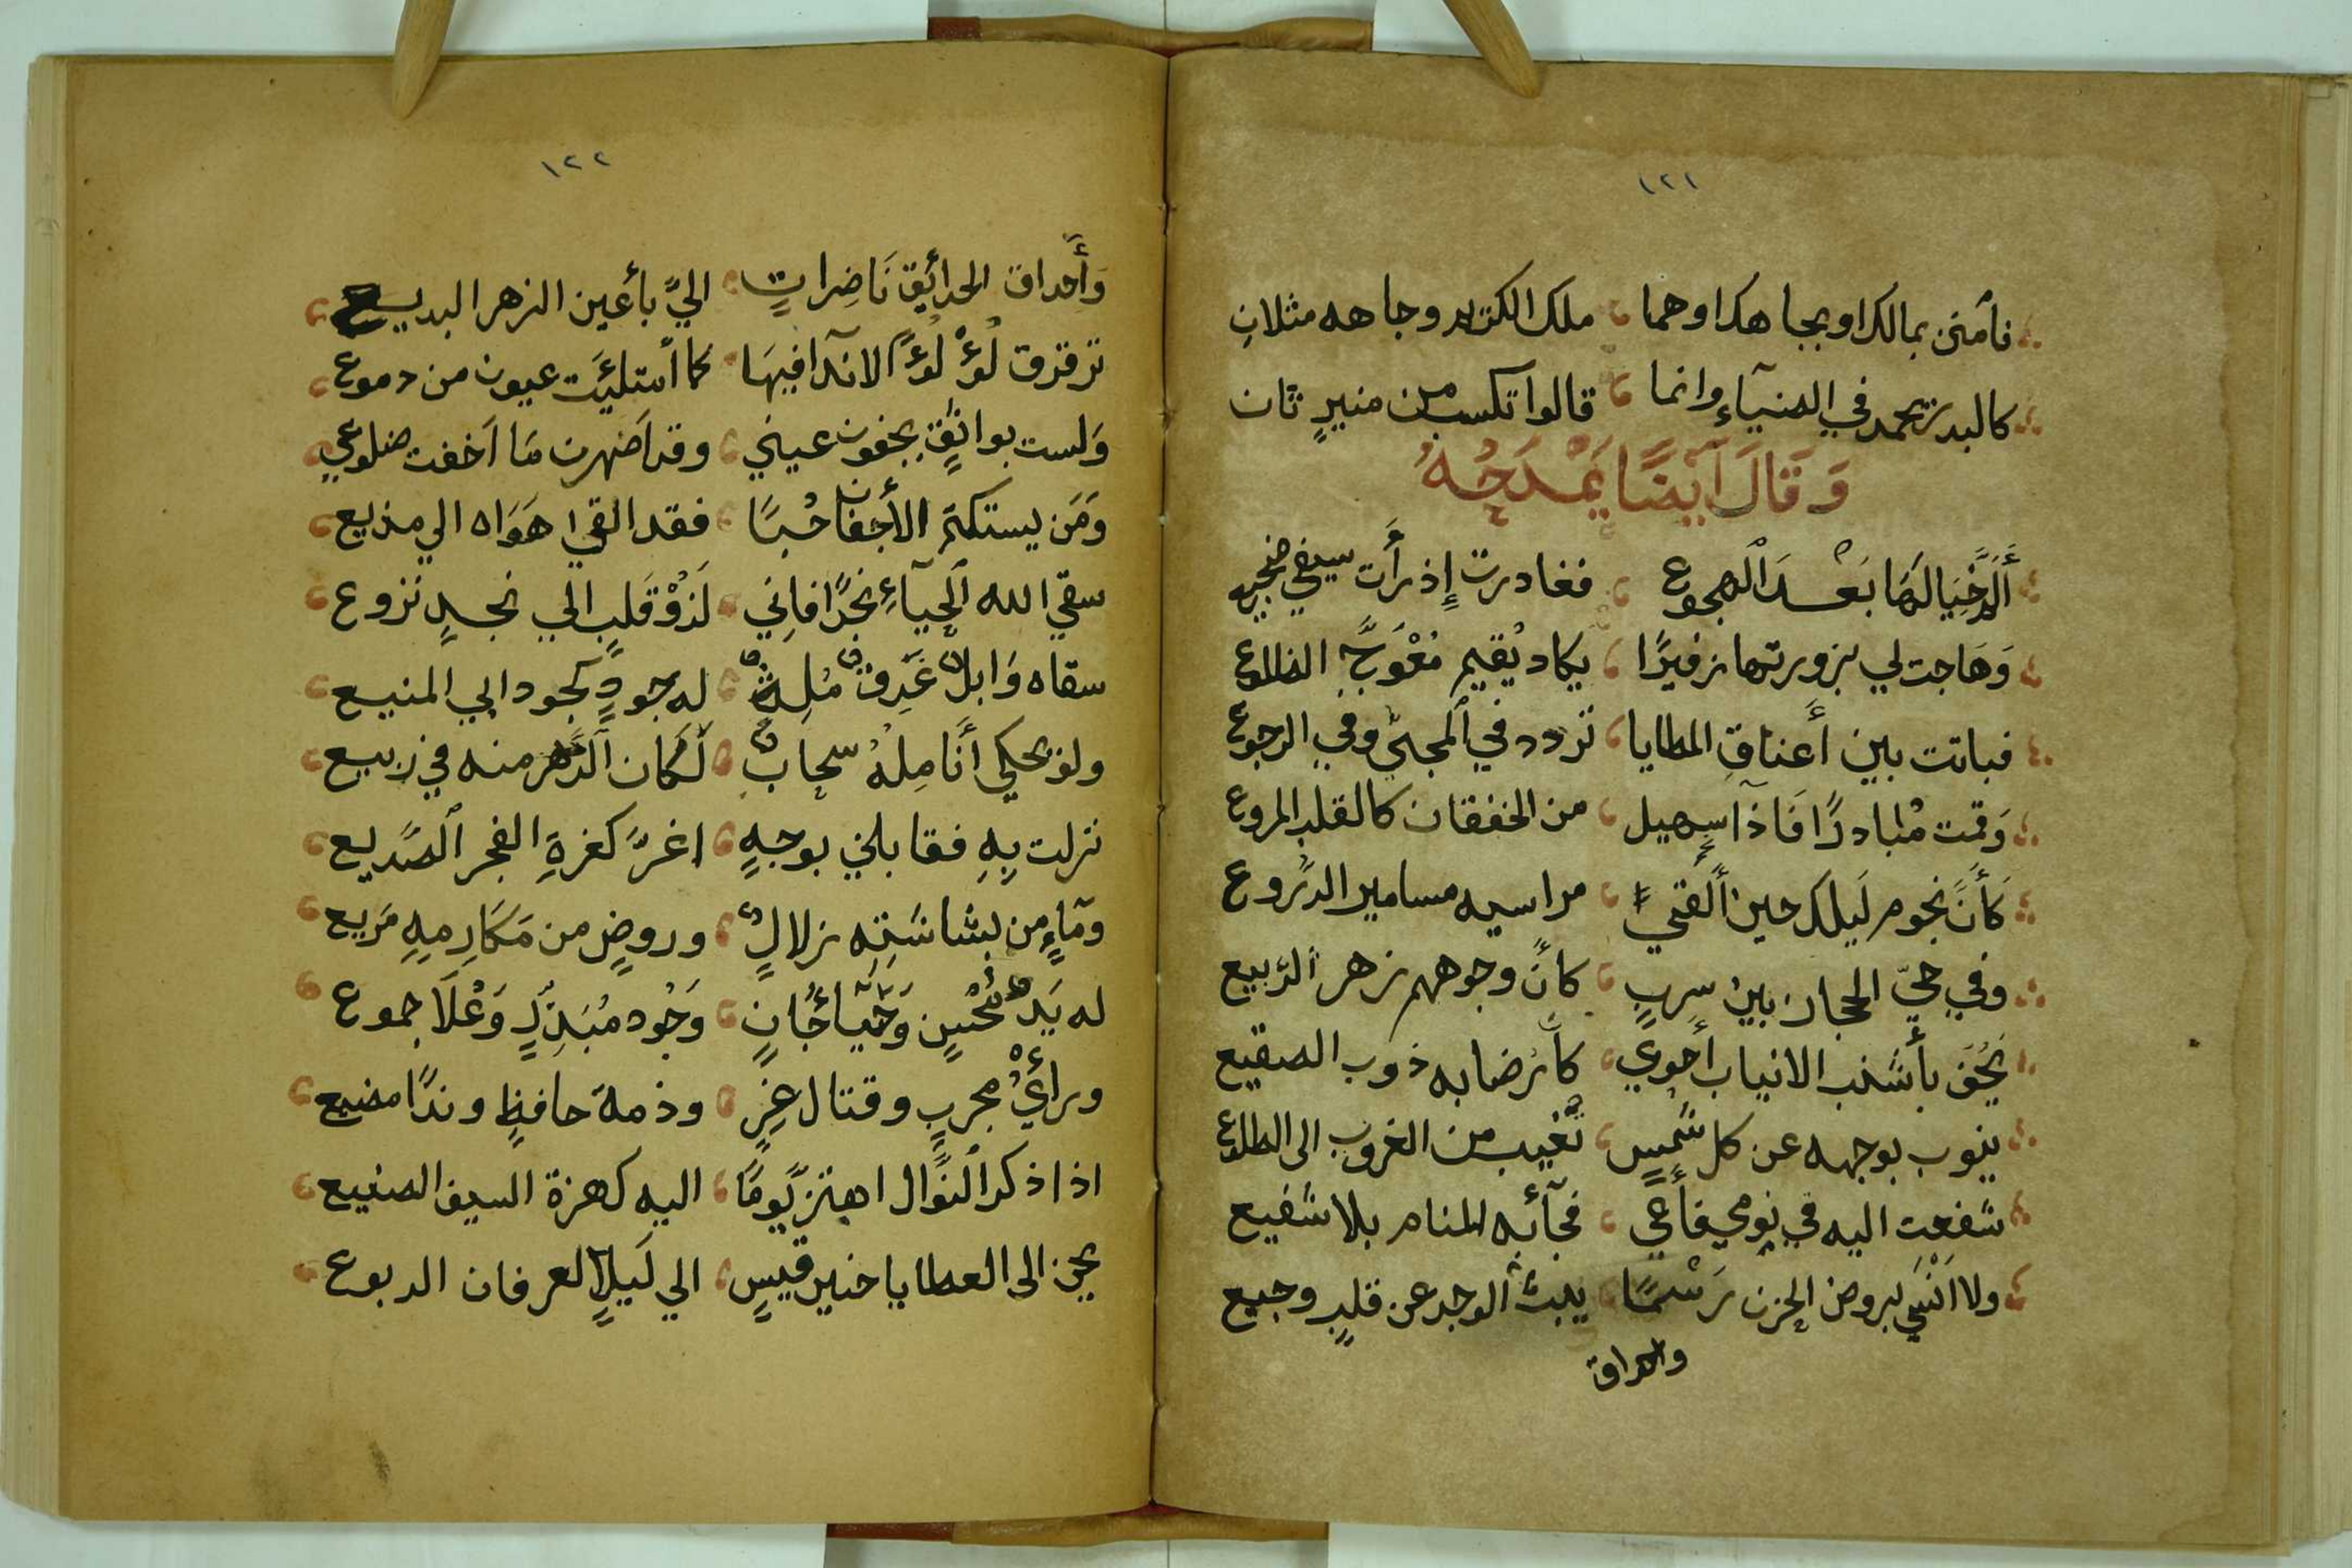 ١٢١
فأمنن بمالك او بجاهك او هما ملك الكتير وجاهه مثلانِ
كالبدر تحمد في الضيآءِ وانما قالوا تكسب من منيرٍ ثان
وَقَالَ آيضًا يَمْدَحُهُ
أَلَمَّ خَيَالَهَا بَعْدَ الهجوع فغادرت إِذ رأَت سيفي ضجيع
وَهَاجت لي بزورتها زفيرًا يكاد يُقيم مُعْوَجَّ الضلوع
فباتت بين أَعناقِ المطايا تردد في المجيّ وفي الرجوع
وَقمت مُبادرًا فَاذآ سهيل من الخفقان كالقلب المروع
كَأَنَّ نجوم لَيلك حين أَلقيَّ مراسيه مسامير الدُروع
وفي حيّ الحجاز بين سِربٍ كانَّ وجوههم زهر الرّبيع
يَحُفّ بأشنب الانياب أَحوي كأَن رضابه ذوب الصقيع
ينوب بوجهه عن كل شَمسٍ تَغيب من الغروب الى الطلوع
شفعت اليه في نومي فأَعي فجآئه المنام بلا شفيع
ولا اَنْسَي بروض الحزن رَسْمًا يبثُ الوجد عن قلبٍ وجيع
واحداق
١٢٢
وَأَحداق الحدائق نَاضِراتٍ اليَّ بأعين الزهر البديع
ترقرق لُؤْلُؤً الاندا فيهَا كما أمتلئَت عيون من دموع
وَلست بواثقٍ بجفون عيني وقد اَضهرن مَا اَخفت ضلوعي
وَمَن يستكتم الأَجفان حُبًا فقد القي هَوَاه الي مذيع
سقي الله الحيآءِ نجدًا فاِني لَذوْ قَلبٍ الي نجدٍ نزوع
سقاه وَابلٌ غَدِقٌ مُلِثٌ له جودٍ كجود ابي المنيع
ولو يحكي أَنَامِلهُ سحابٌ لَكان الدَّهر منه في ربيع
نزلت بِهِ فقابلني بوجهٍ اغرَّ كغرةِ الفجر الصَديع
ومَاءٍ من بشاشَتِه زلالٍ وروضٍ من مَكَارِمِهِ مَريع
له يَد مُحْسِنٍ وَحَيَآ جُانٍ وَجُود مُبَذِّرٍ وَعُلَا جموع
ورأيُ مجربٍ وقتال غِرٍ وذمة حافظٍ وندًا مضيع
اذا ذكر النَّوال اهتز يَومًا اليه كهزة السيف الصنيع
يحن الى العطايا حنين قيسٍ الي لَيلاٍ لعرفان الربوع